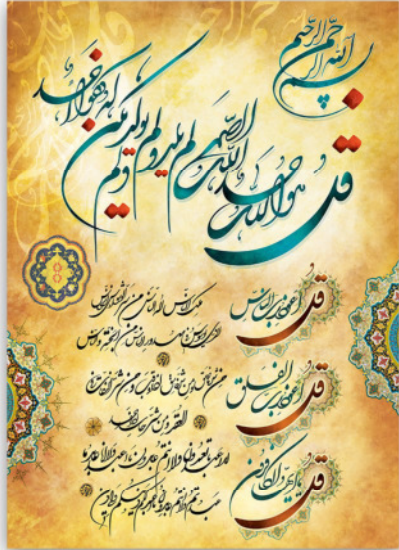 بسم الله الرحمن الرحيم
قل هو الله احد الله الصمد لم يلد ولم يولد ولم يكن له كفوا احد
قل اعوذ برب الناس
ملك الناس اله الناس من شر الوسواس الخناس
الذي يوسوس في صدور الناس من الجنة والناس
قل اعوذ برب الفلق
من شر ما خلق ومن شر غاسق اذا وقب ومن شر النفاثات في
العقد ومن شر حاسد اذا حسد
قل يا ايها الكافرون
لا اعبد ما تعبدون ولا انتم عابدون ما اعبد ولا انا عابد ما
عبدتم ولا انتم عابدون ما اعبد لكم دينكم ولي دين